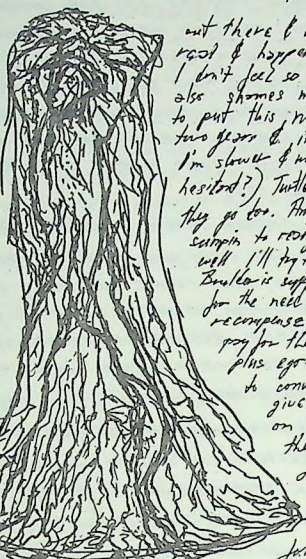 out there &
read & happen
I don't feel so
also shames m
to put this in
two years &
I'm slower &
hesitant?)
they go too. Th
sumpin to rea
well I'll try
is supp
for the need
recompense
pay for th
plus ego
to con
give
on
the